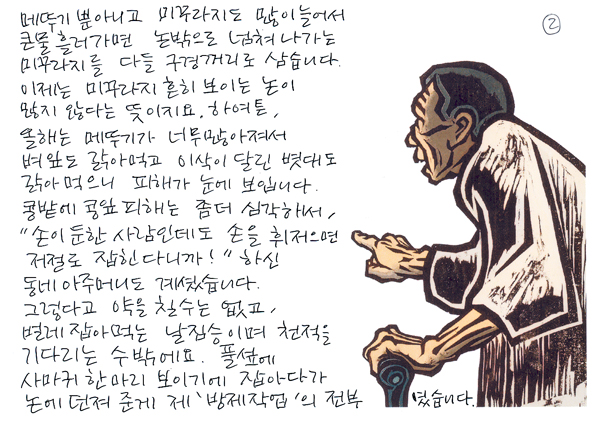 ②
메뚜기 뿐아니고 미꾸라지도 많이 늘어서
큰물 흘러가면 논밖으로 넘쳐 나가는
미꾸라지를 다들 구경꺼리로 삼습니다.
이제는 미꾸라지 흔히 보이는 논이
많지 않다는 뜻이지요. 하여튼,
올해는 메뚜기가 너무많아져서
벼잎도 갉아먹고 이삭이 달린 볏대도
갉아 먹으니 피해가 눈에 보입니다.
콩밭에 콩잎피해는 좀더 심각해서,
"손이 둔한 사람인데도 손을 휘저으면
저절로 잡힌다니까!" 하신
동네 아주머니도 계셨습니다.
그렇다고 약을 칠수는 없고,
벌레 잡아먹는 날짐승이며 천적을
기다리는 수밖에요. 풀섶에
사마귀 한마리 보이기에 잡아다가
논에 던져 준게 제 '방제작업'의 전부였습니다.